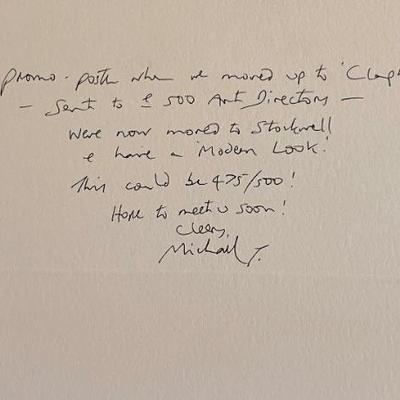 Promo-Poster when we moved up to 'Clap
– Sent to ± 500 Art Directors –
We're now moved to Stockwell
& have a 'Modern Look'!
This could be 475/500!
Hope to meet u soon!
Cheers,
Michael T.